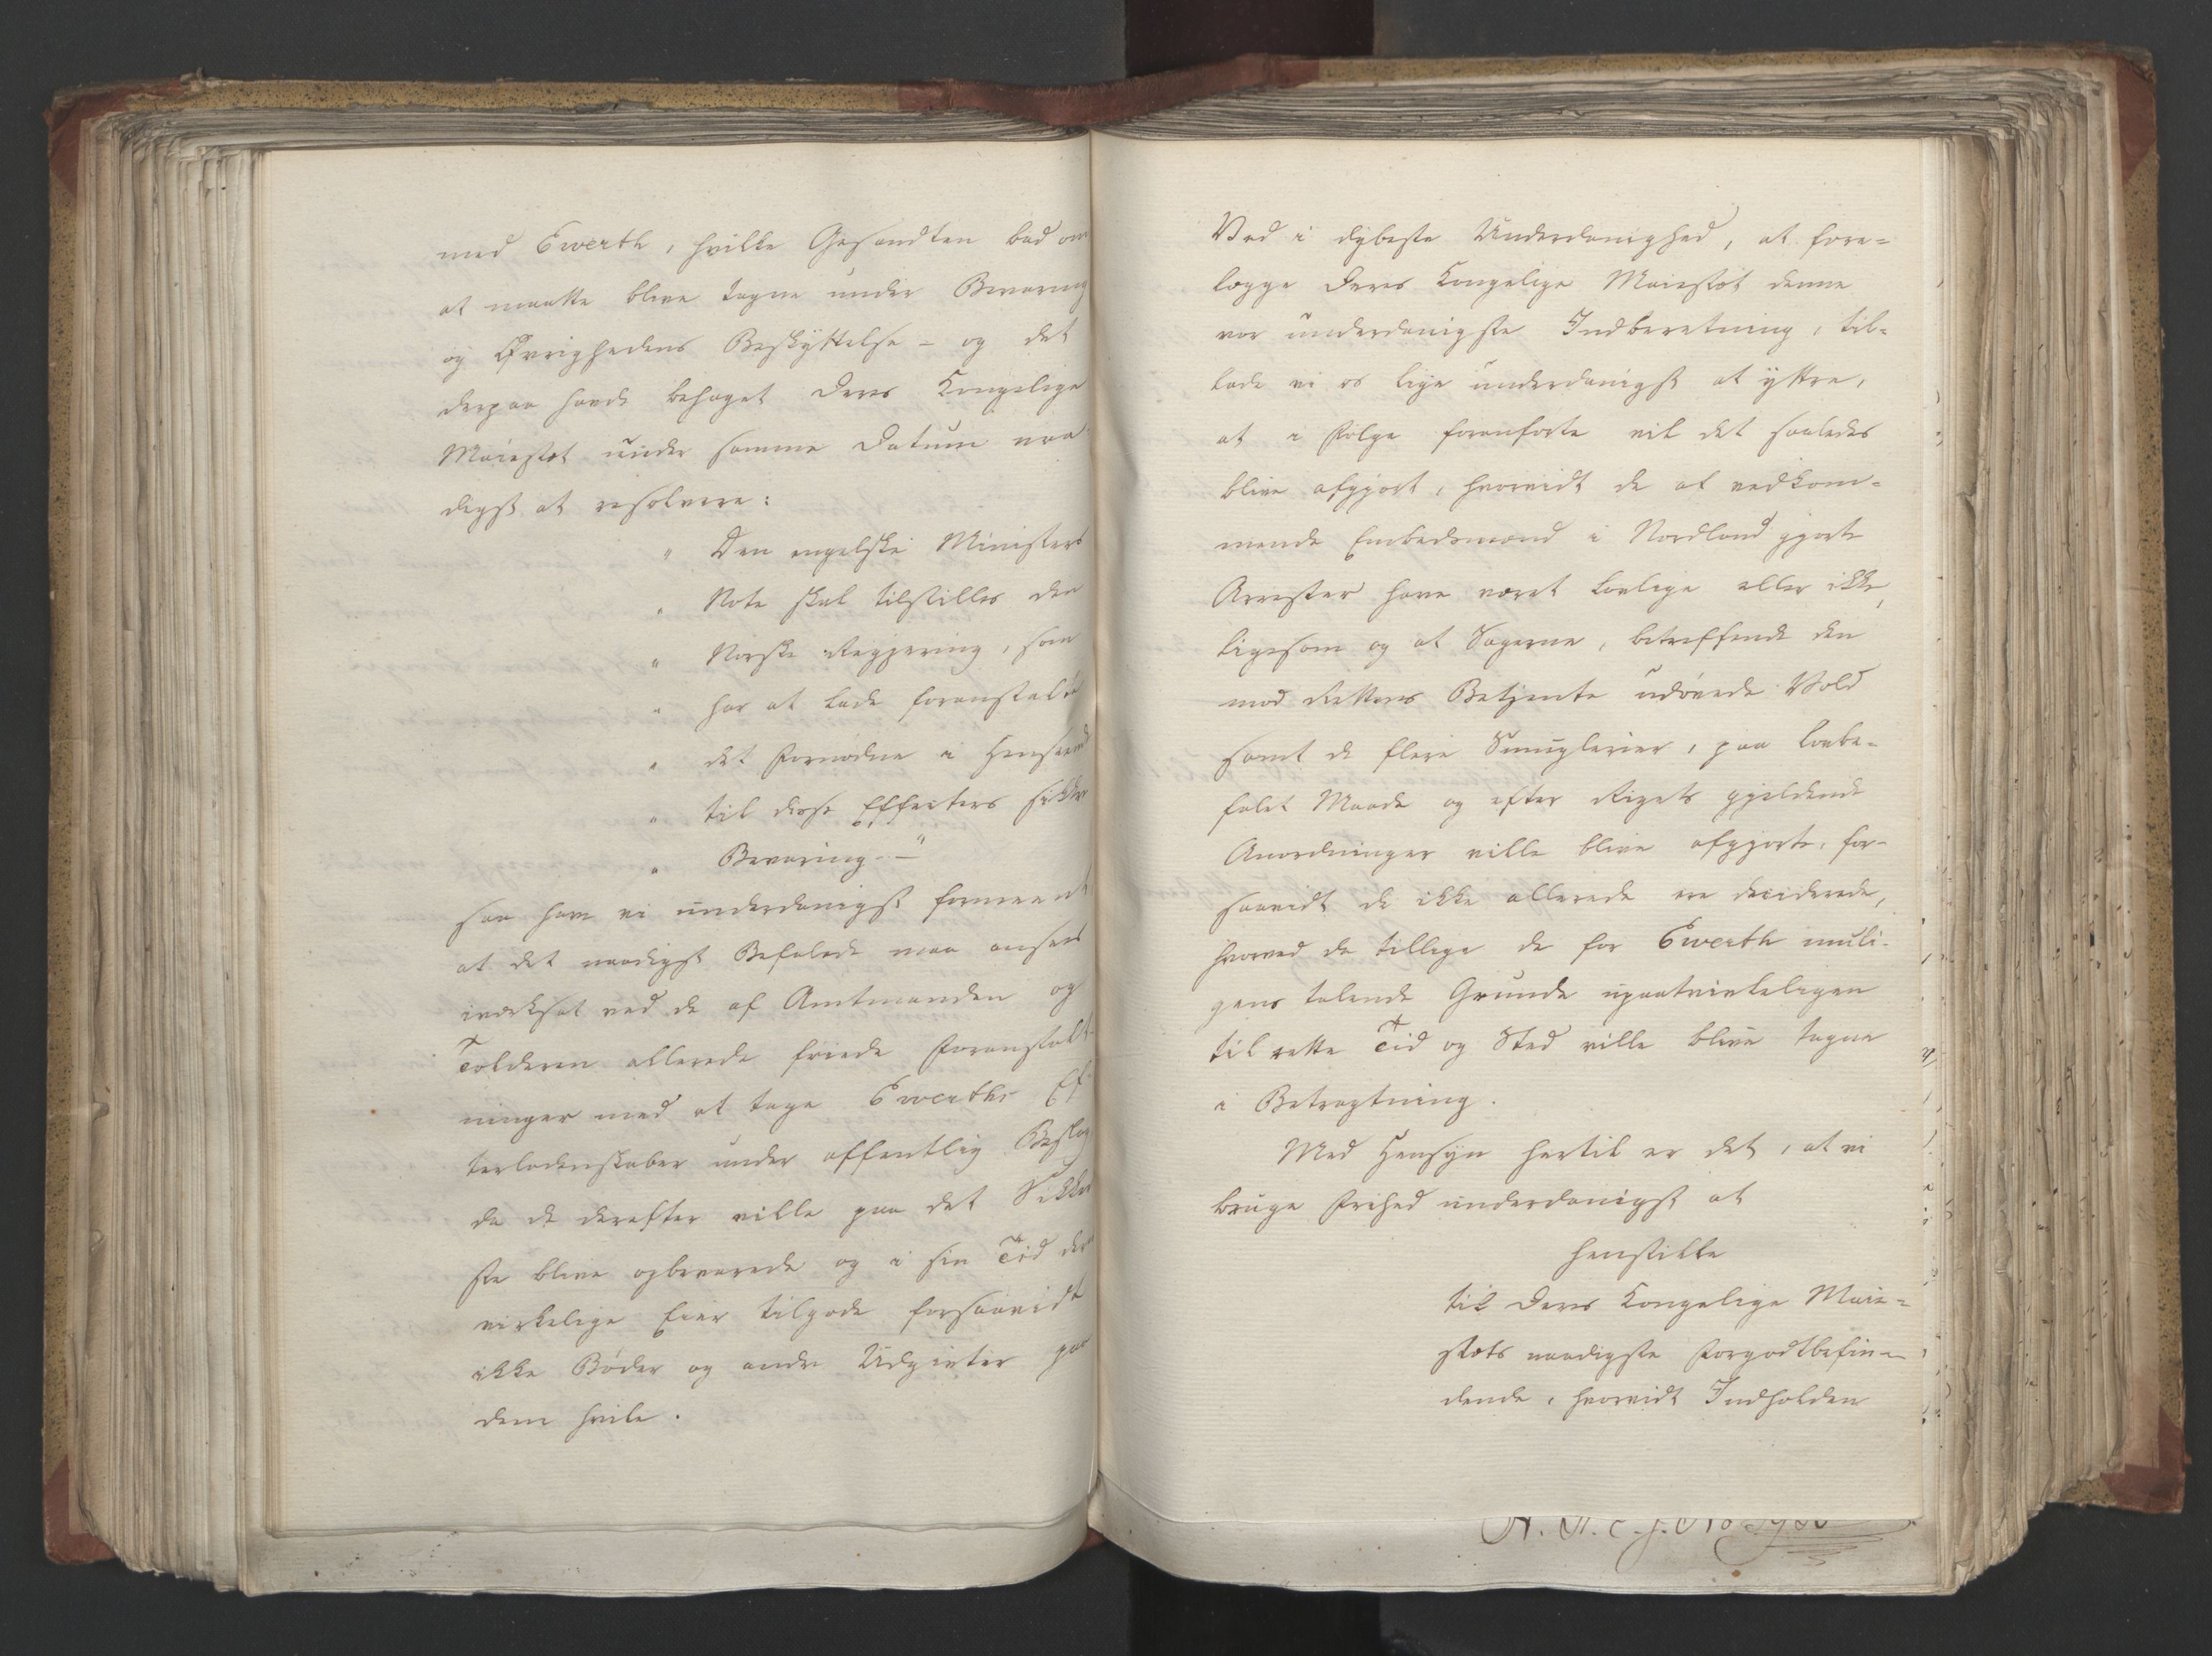 med Ewerth, hvilke Gesandten bad om
at maatte blive tagne under Bevaring
og Øvrighedens Beskyttelse - og det
derpaa havde behaget Deres Kongelige
Maiestæt under samme Datum naa
digst at resolvere:
" Den engelske Ministers
" Note skal tilstilles den
" Norske Regjering, som
" har at lade foranstalte
" det Fornødne i Henseende
" til disse Effecters sikkre
" Bevaring -"
saa have vi underdanigst formeent
at det naadigst Befalede maa ansees
iværksat ved de af Amtmanden og
Tolderen allerede føiede Foranstalt
ninger med at tage Ewerths Ef
terladenskaber under offentlig Beslag
da de derefter ville paa det Sikkre
ste blive opbevarede og i sin Tid den
virkelige Eier tilgode forsaavidt
ikke Bøder og andre Udgivter paa
dem hvile.
Ved i dybeste Underdanighed, at fore=
lægge Deres Kongelige Maiestæt denne
vor underdanigste Indberetning, til=
lade vi os lige underdanigst at yttre,
at i Følge foranførte vil det saaledes
blive afgjort, hvorvidt de af vedkom=
mende Embedsmænd i Nordland gjorte
Arrester have været lovlige eller ikke,
ligesom og at Sagerne, betreffende den
mod Rettens Betjente udøvede Vold
samt de flere Smuglerier, paa lovbe=
falet Maade og efter Rigets gjeldende
Anordninger ville blive afgjorte, for=
saavidt de ikke allerede ere deciderede,
hvorved da tillige de for Ewerth muli=
gens talende Grunde upaatvivleligen
til rette Tid og Sted ville blive tagne
i Betragtning.
Med Hensyn hertil er det, at vi
bruge Frihed underdanigst at
henstille
til Deres Kongelige Maie=
stæts naadigste Forgodtbefin=
dende, hvorvidt Indholden